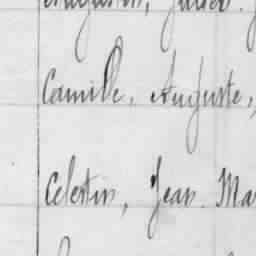 Camille, Auguste,
Celestin, Jean Ma